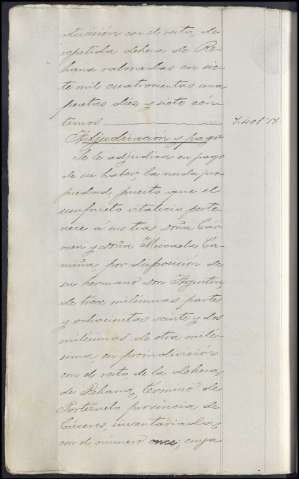 división con el resto de
repetida dehesa de Re-
hana valoradas en sie-
te mil cuatrocientas una
pesetas diez y siete cén-
timos 7.401'17
Adjudicación y pago
Se le adjudica en pago
de su haber la nuda pro-
piedad, puesto que el
usufructo vitalicio perte-
nece a sus tías doña Car-
men y doña Micaela
por disposición de
su hermano don Agustín,
de trece milésimas partes
y ochocientas veinte y dos
milésimas de otra milé-
sima en proindivisión
con el resto de la dehesa
de Rehana, término de
provincia de
Cáceres, inventariada
con el número once, cuya